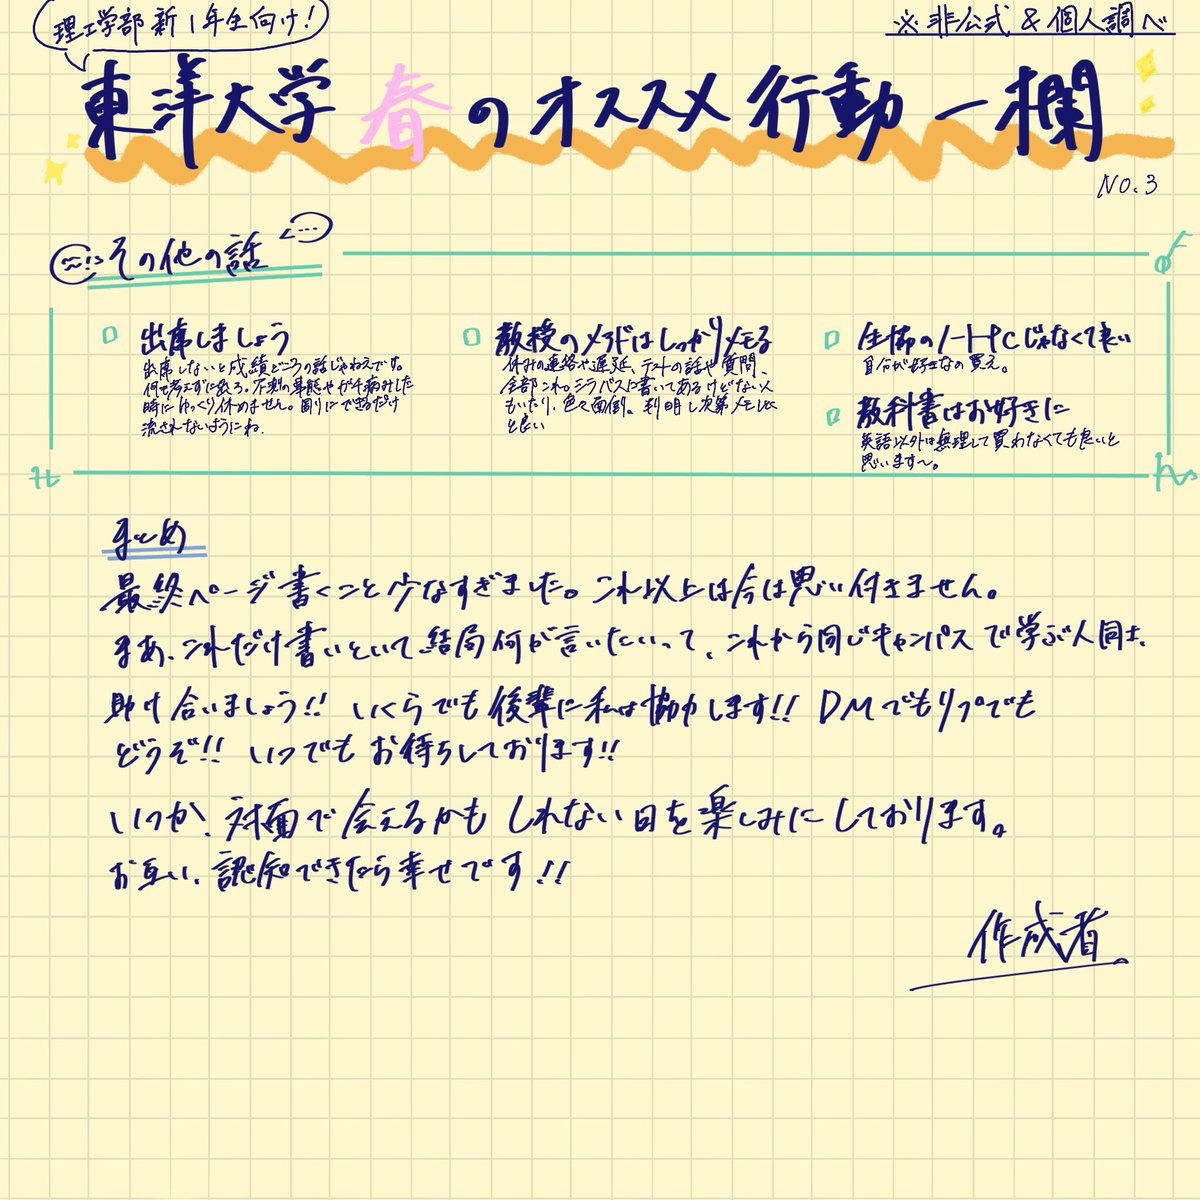 理工学部新1年生向け!
※非公式&個人調べ
東洋大学 春のオススメ行動一欄
No.3
その他の話
出席しましょう
出席しないと成績どころの話じゃねえです。
何も考えずに出ろ。不測の事態やガチ病みした
時にゆっくり休めません。周りにできるだけ
流されないようにね.
教授のメアドはしっかりメモる
休みの連絡や遅延、テストの話や質問、
全部これ。シラバスに書いてあるけどない人
もいたり、色々面倒。判明し次第メモしに
と良い
生協のノートPCじゃなくて良い
自分が好きなの買え。
教科書はお好きに
英語以外は無理して買わなくても良いと
思います〜。
まとめ
最終ページ書くこと少なすぎました。これ以上は今は思い付きません。
まあ、これだけ書いといて結局何が言いたいって、これから同じキャンパスで学ぶ人同士、
助け合いましょう!! いくらでも後輩に私は協力します!! DMでもリプでも
どうぞ!! いつでもお待ちしております!!
いつか、対面で会えるかもしれない日を楽しみにしております。
お互い、認知できたら幸せです!!
作成者。